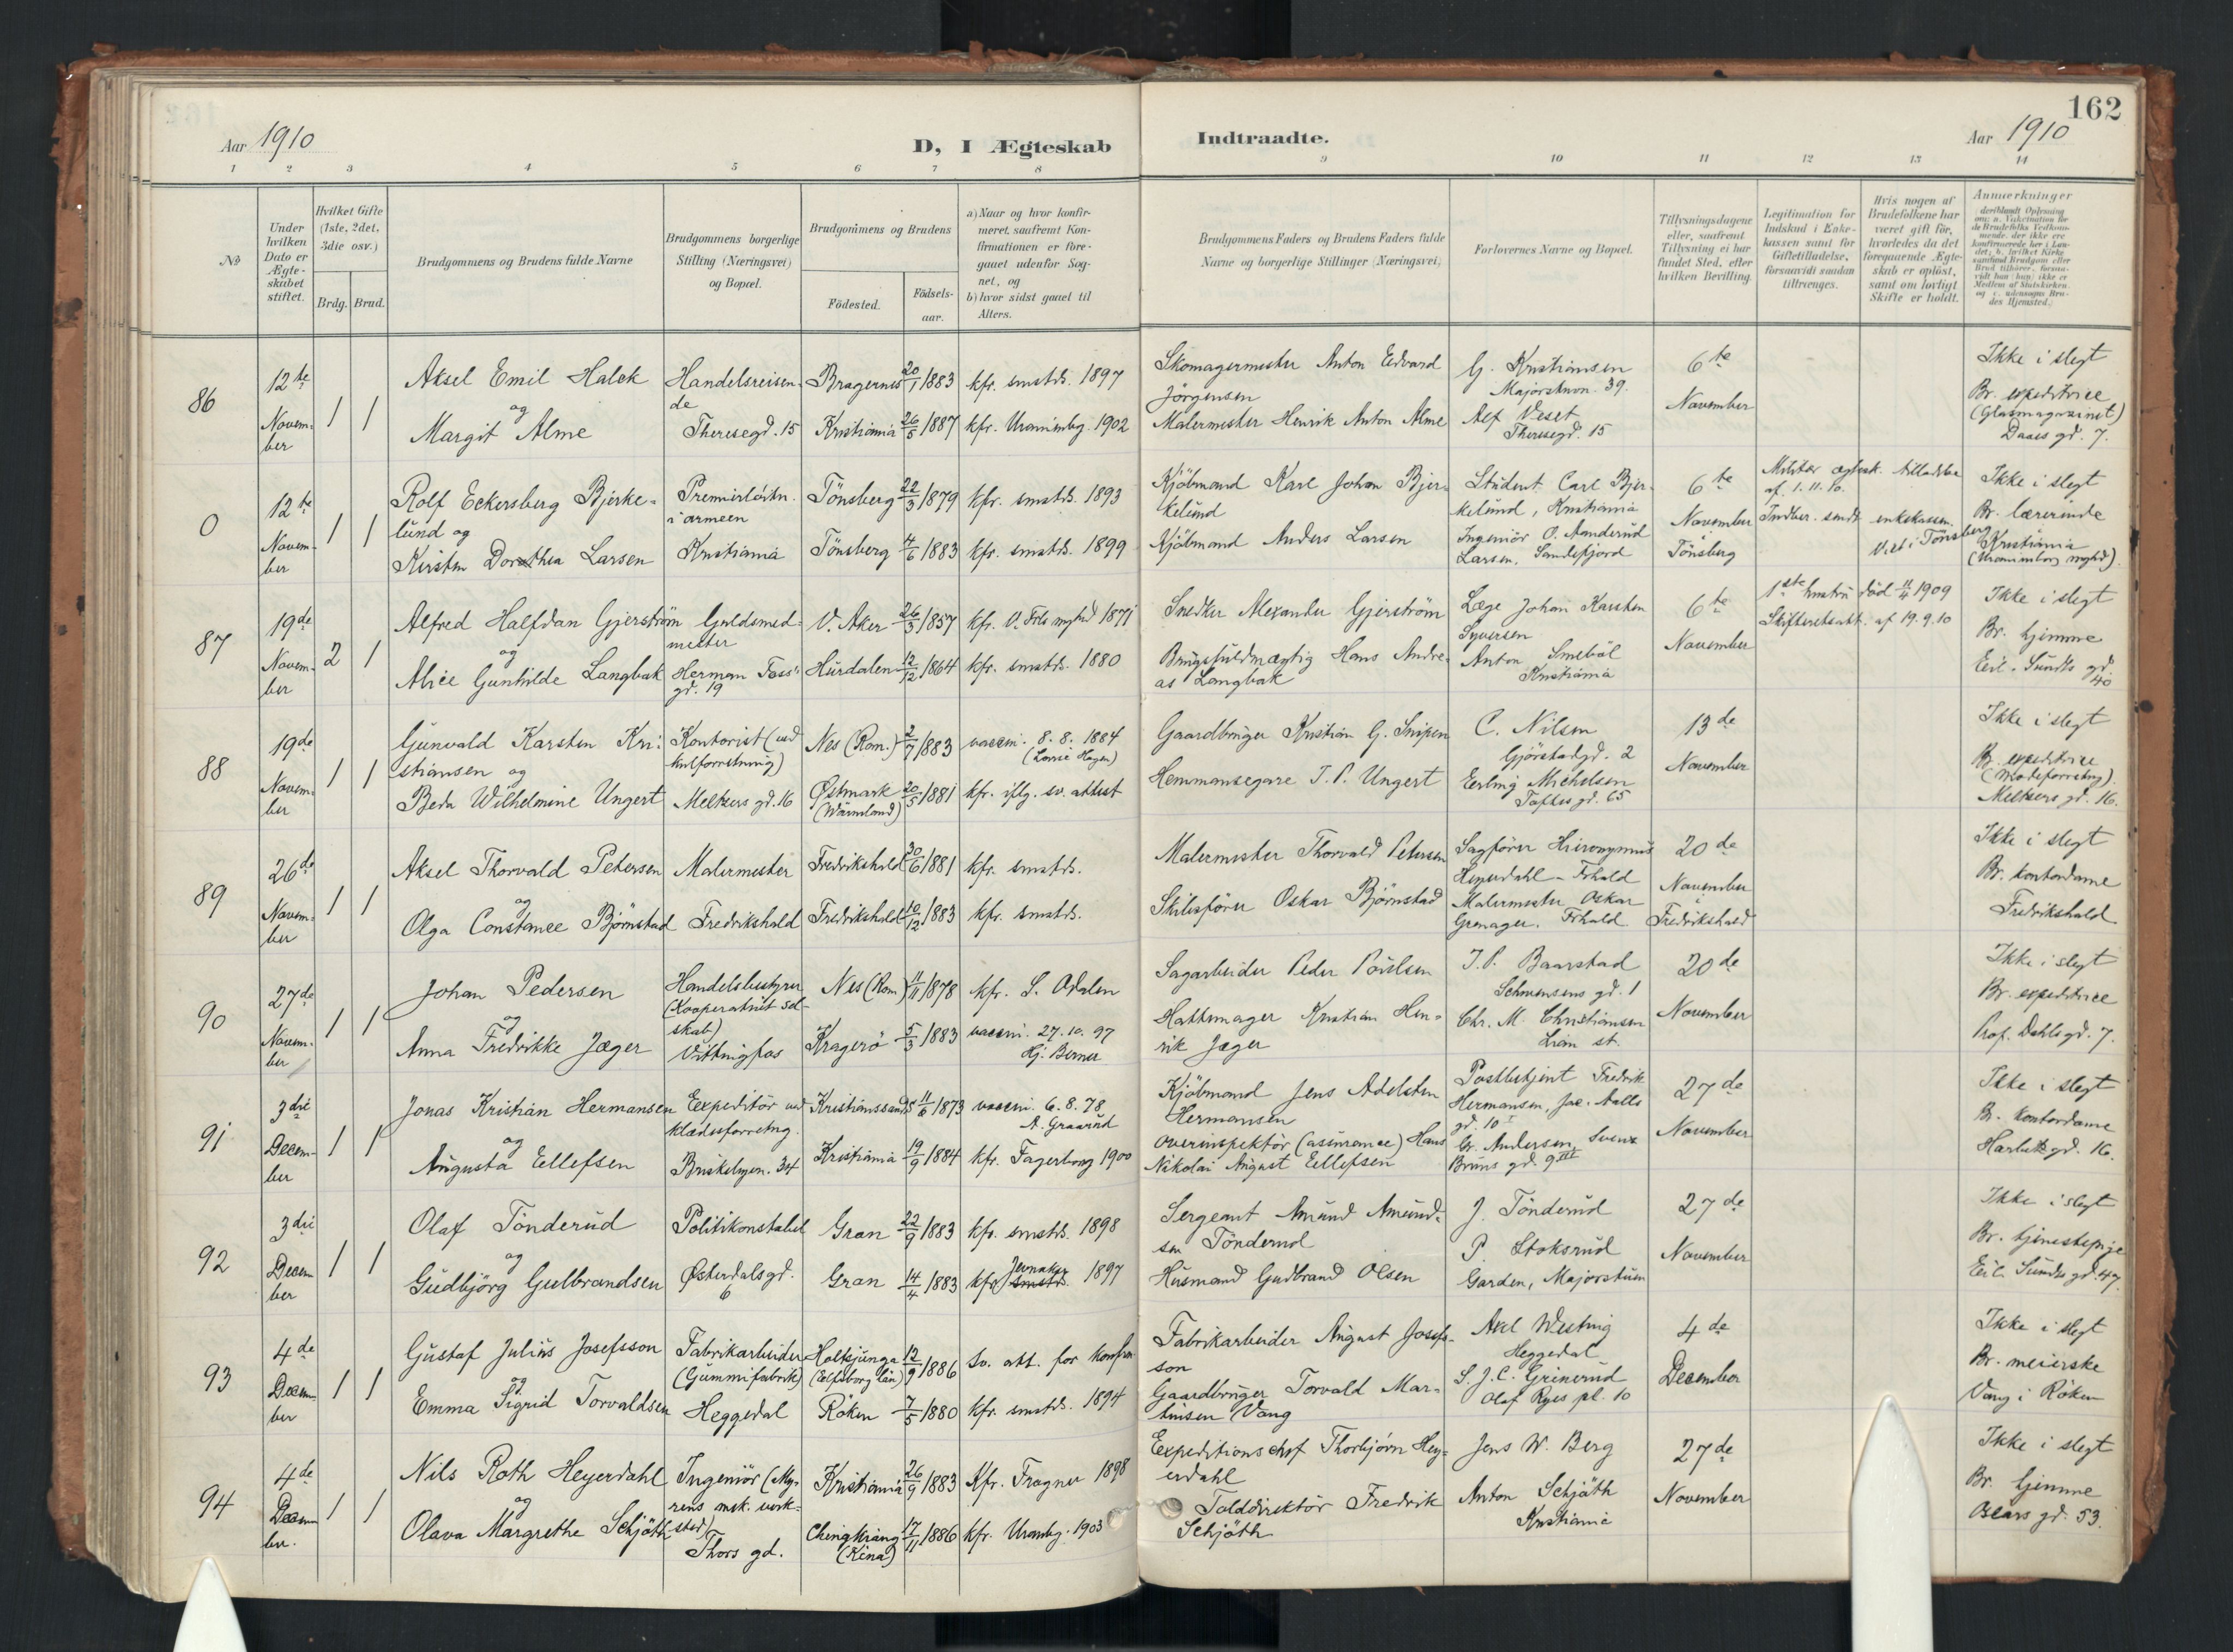 162
Aar 1910
D, I Ægteskab
Indtraadte.
Aar 1910
1 2 3 4 5 6 7 8 9 10 11 12 13 14
No
Under hvilken Dato er Ægteskabet stiftet.
Hvilket Gifte (1ste, 2det, 3die osv.)
Brdg. Brud.
Brudgommens og Brudens fulde Navne
Brudgommens borgerlige Stilling (Næringsvei) og Bopæl.
Brudgommens og Brudens
Födested.
Födsels-aar.
a) Naar og hvor konfirmeret, saafremt Konfirmationen er foregaaet udenfor Sognet, og
b) hvor sidst gaaet til Alters.
Brudgommens Faders og Brudens Faders fulde Navne og borgerlige Stillinger (Næringsvei)
Forlovernes Navne og Bopæl.
Tillysningsdagene eller, saafremt Tillysning ei har fundet Sted, efter hvilken Bevilling.
Legitimation for Indskud i Enkekassen samt for Giftetilladelse, forsaavidt saadan tiltrænges.
Hvis nogen af Brudefolkene har været gift för, hvorledes da det foregaaende Ægteskab er oplöst, samt om lovligt Skifte er holdt.
Anmærkninger
86
12te November
1 1
Aksel Emil Halck
og
Margit Alme
Handelsreisende
Theresegd. 15
Bragernes 20/1 1883 kfr. smstds. 1897
Kristiania 26/5 1887 kfr. Uranienbg. 1902
Skomagermester Anton Edvard Jörgensen
Malermester Henrik Anton Alme
G. Kristiansen
Majorstuvn. 39.
Alf Veset
Theresegd. 15
6te November
Ikke i slegt
Br. expeditrice
(Glasmagasinet)
Daaes gd. 7.
0
12te November
1 1
Rolf Eckersberg Bjerkelund og
Kirsten Dorothea Larsen
Premierløitn. i armeen
Kristiania
Tönsberg 22/3 1879 kfr. smstds. 1893
Tönsberg 4/6 1883 kfr. smstds. 1899
Kjöbmand Karl Johan Bjerkelund
Kjöbmand Anders Larsen
Student Carl Bjerkelund, Kristiania
Ingeniör O. Aanderud Larsen, Sandefjord
6te November
Tönsberg
Militær ægtesk. tilladelse af 1.11.10.
Indber. sendt enkekassen.
Viet i Tönsberg
Ikke i slegt
Br. lærerinde
Kristiania
(Uranienborg mghd).
87
19de November
2 1
Alfred Halfdan Gjerström
og
Alice Gunhilde Langbak
Guldsmedmester
Herman Foss' gd. 19
V. Aker 26/3 1857 kfr. V. Frls mghd 1871
Hurdalen 12/12 1864 kfr. smstds. 1880
Snedker Alexander Gjerström
Brugsfuldmægtig Hans Andreas Langbak
Læge Johan Karsten Syversen
Anton Smebøl
Kristiania
6te November
1ste hustru död 11/4 1909
Skifteretsatt. af 19.9.10
Ikke i slegt
Br. hjemme
Eil. Sundts gd. 40
88
19de November
1 1
Gunvald Karsten Kristiansen og
Beda Wilhelmine Ungert
Kontorist (ved kulforretning)
Meltzers gd. 16
Nes (Rom.) 2/7 1883 vaccin. 8.8.1884
Østmark (Wärmland) 20/5 1881 kfr. iflg. sv. attest
Gaardbruger Kristian G. Snipen
Hemmansegare J. P. Ungert
C. Nilsen
Gjörstadgd. 2
Erling Michelsen
Toftesgd. 65
13de November
Ikke i slegt
Br. expeditrice
(Modeforretng).
Meltzers gd. 16.
89
26de November
1 1
Aksel Thorvald Petersen
og
Olga Constance Björnstad
Malermester
Fredrikshald
Fredrikshald 30/6 1881 kfr. smstds.
Fredrikshald 10/12 1883 kfr. smstds.
Malermester Thorvald Petersen
Skibsförer Oskar Bjørnstad
Sagförer Hieronymus Heyerdahl - Frhald
Malermester Oskar Grenager. Frhald.
20de November
i
Fredrikshald
Ikke i slegt
Br. kontordame
Fredrikshald
90
27de November
1 1
Johan Pedersen
og
Anna Fredrikke Jæger
Handelsbestyrer
(Kooperativt selskab)
Vittingfos
Nes (Rom) 11/11 1878 kfr. S. Odalen
Kragerö 5/3 1883 vaccin. 27.10.97
Hj. Berner
Sagarbeider Peder Poulsen
Hattemager Kristian Henrik Jæger
J. P. Baarstad
Schwensens gd. 1
Chr. M. Christiansen
20de November
Ikke i slegt
Br. expeditrice
Prof. Dahlsgd. 7.
91
3die December
1 1
Jonas Kristian Hermansen
og
Augusta Ellefsen
Expeditör ved klædesforretng.
Briskebyvn. 34
Kristianssand S 11/6 1873 vaccin. 6.8.78
A. Graarud
Kristiania 19/9 1884 kfr. Fagerborg 1900
Kjöbmand Jens Adelsten Hermansen
Overinspektör (assurance) Hans Nikolai August Ellefsen
Postbetjent Fredrik Hermansen, Jac. Aalls gd. 10 I
Gr. Andersen, Svenz Bruns gd. 9 III
27de November
Ikke i slegt
Br. kontordame
Harbitzgd. 16.
92
3die December
1 1
Olaf Tönderud
og
Gudbjörg Gulbrandsen
Politikonstabel
Østerdalsgd. 6
Gran 22/9 1883 kfr. smstds. 1898
Gran 14/4 1883 kfr. Jevnaker smstds. 1897
Sergeant Amund Amundsen Tönderud
Husmand Gudbrand Olsen
J. Tönderud
P. Stoksrud
Garden, Majorstuen
27de November
Ikke i slegt
Br. tjenestepige
Eil. Sundts gd. 47.
93
4de December
1 1
Gustaf Julius Josefsson
og
Emma Sigrid Torvaldsen
Fabrikarbeider
(Gummifabrik)
Heggedal
Holtsjunga (Elfsborg län) 12/9 1886 Sv. att. for konfirm
Röken 7/5 1880 kfr. smstds. 1894
Fabrikarbeider August Josefsson
Gaardbruger Torvald Martinsen Vang
Axel Westing
Heggedal
S. J. C. Grinerud
Olaf Ryes pl. 10
4de December
Ikke i slegt
Br. meierske
Vang i Röken
94
4de December.
1 1
Nils Roth Heyerdahl
og
Olava Margrethe Schjöth
Ingeniör (Myrens mek. verksted)
Thors gd.
Kristiania 26/9 1883 Kfr. Frogner 1898
Chingkiang (Kina) 17/11 1886 kfr. Uranbg. 1903
Expeditionschef Thorbjörn Heyerdahl
Tolddirektör Fredrik Schjöth
Jens W. Berg
Anton Schjöth
Kristiania
27de November
Ikke i slegt
Br. hjemme
Oscars gd. 53.